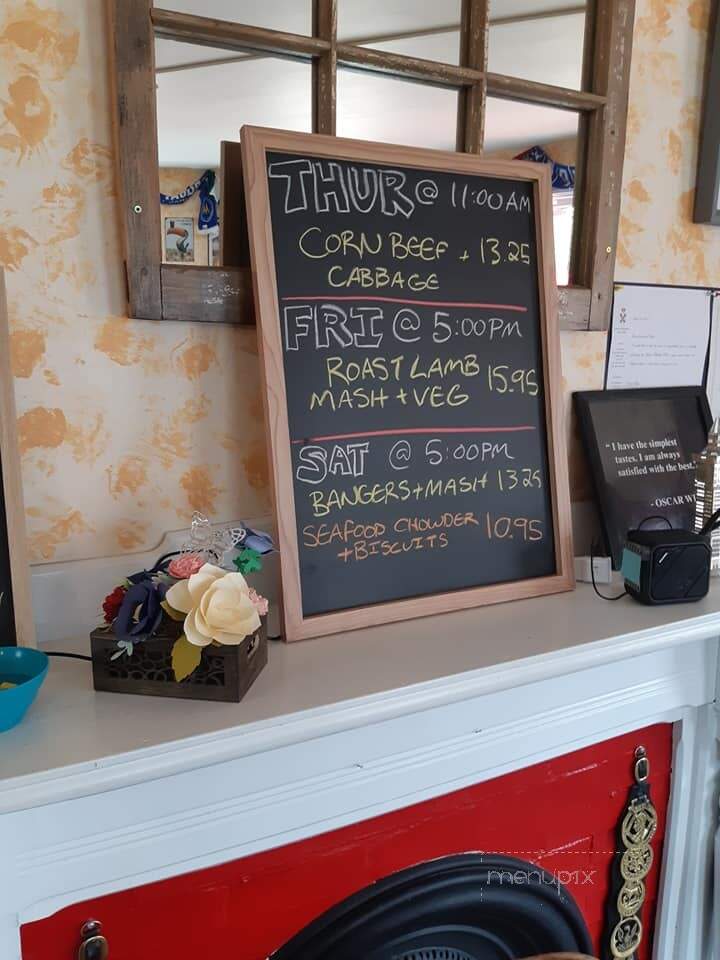 THUR @ 11:00AM
CORN BEEF + 13.25
CABBAGE
FRI @ 5:00PM
ROAST LAMB
MASH + VEG 15.95
SAT @ 5:00PM
BANGERS+MASH 13.25
SEAFOOD CHOWDER 10.95
+BISCUITS
“ I have the simplest
tastes. I am always
satisfied with the best.
- OSCAR
menupix